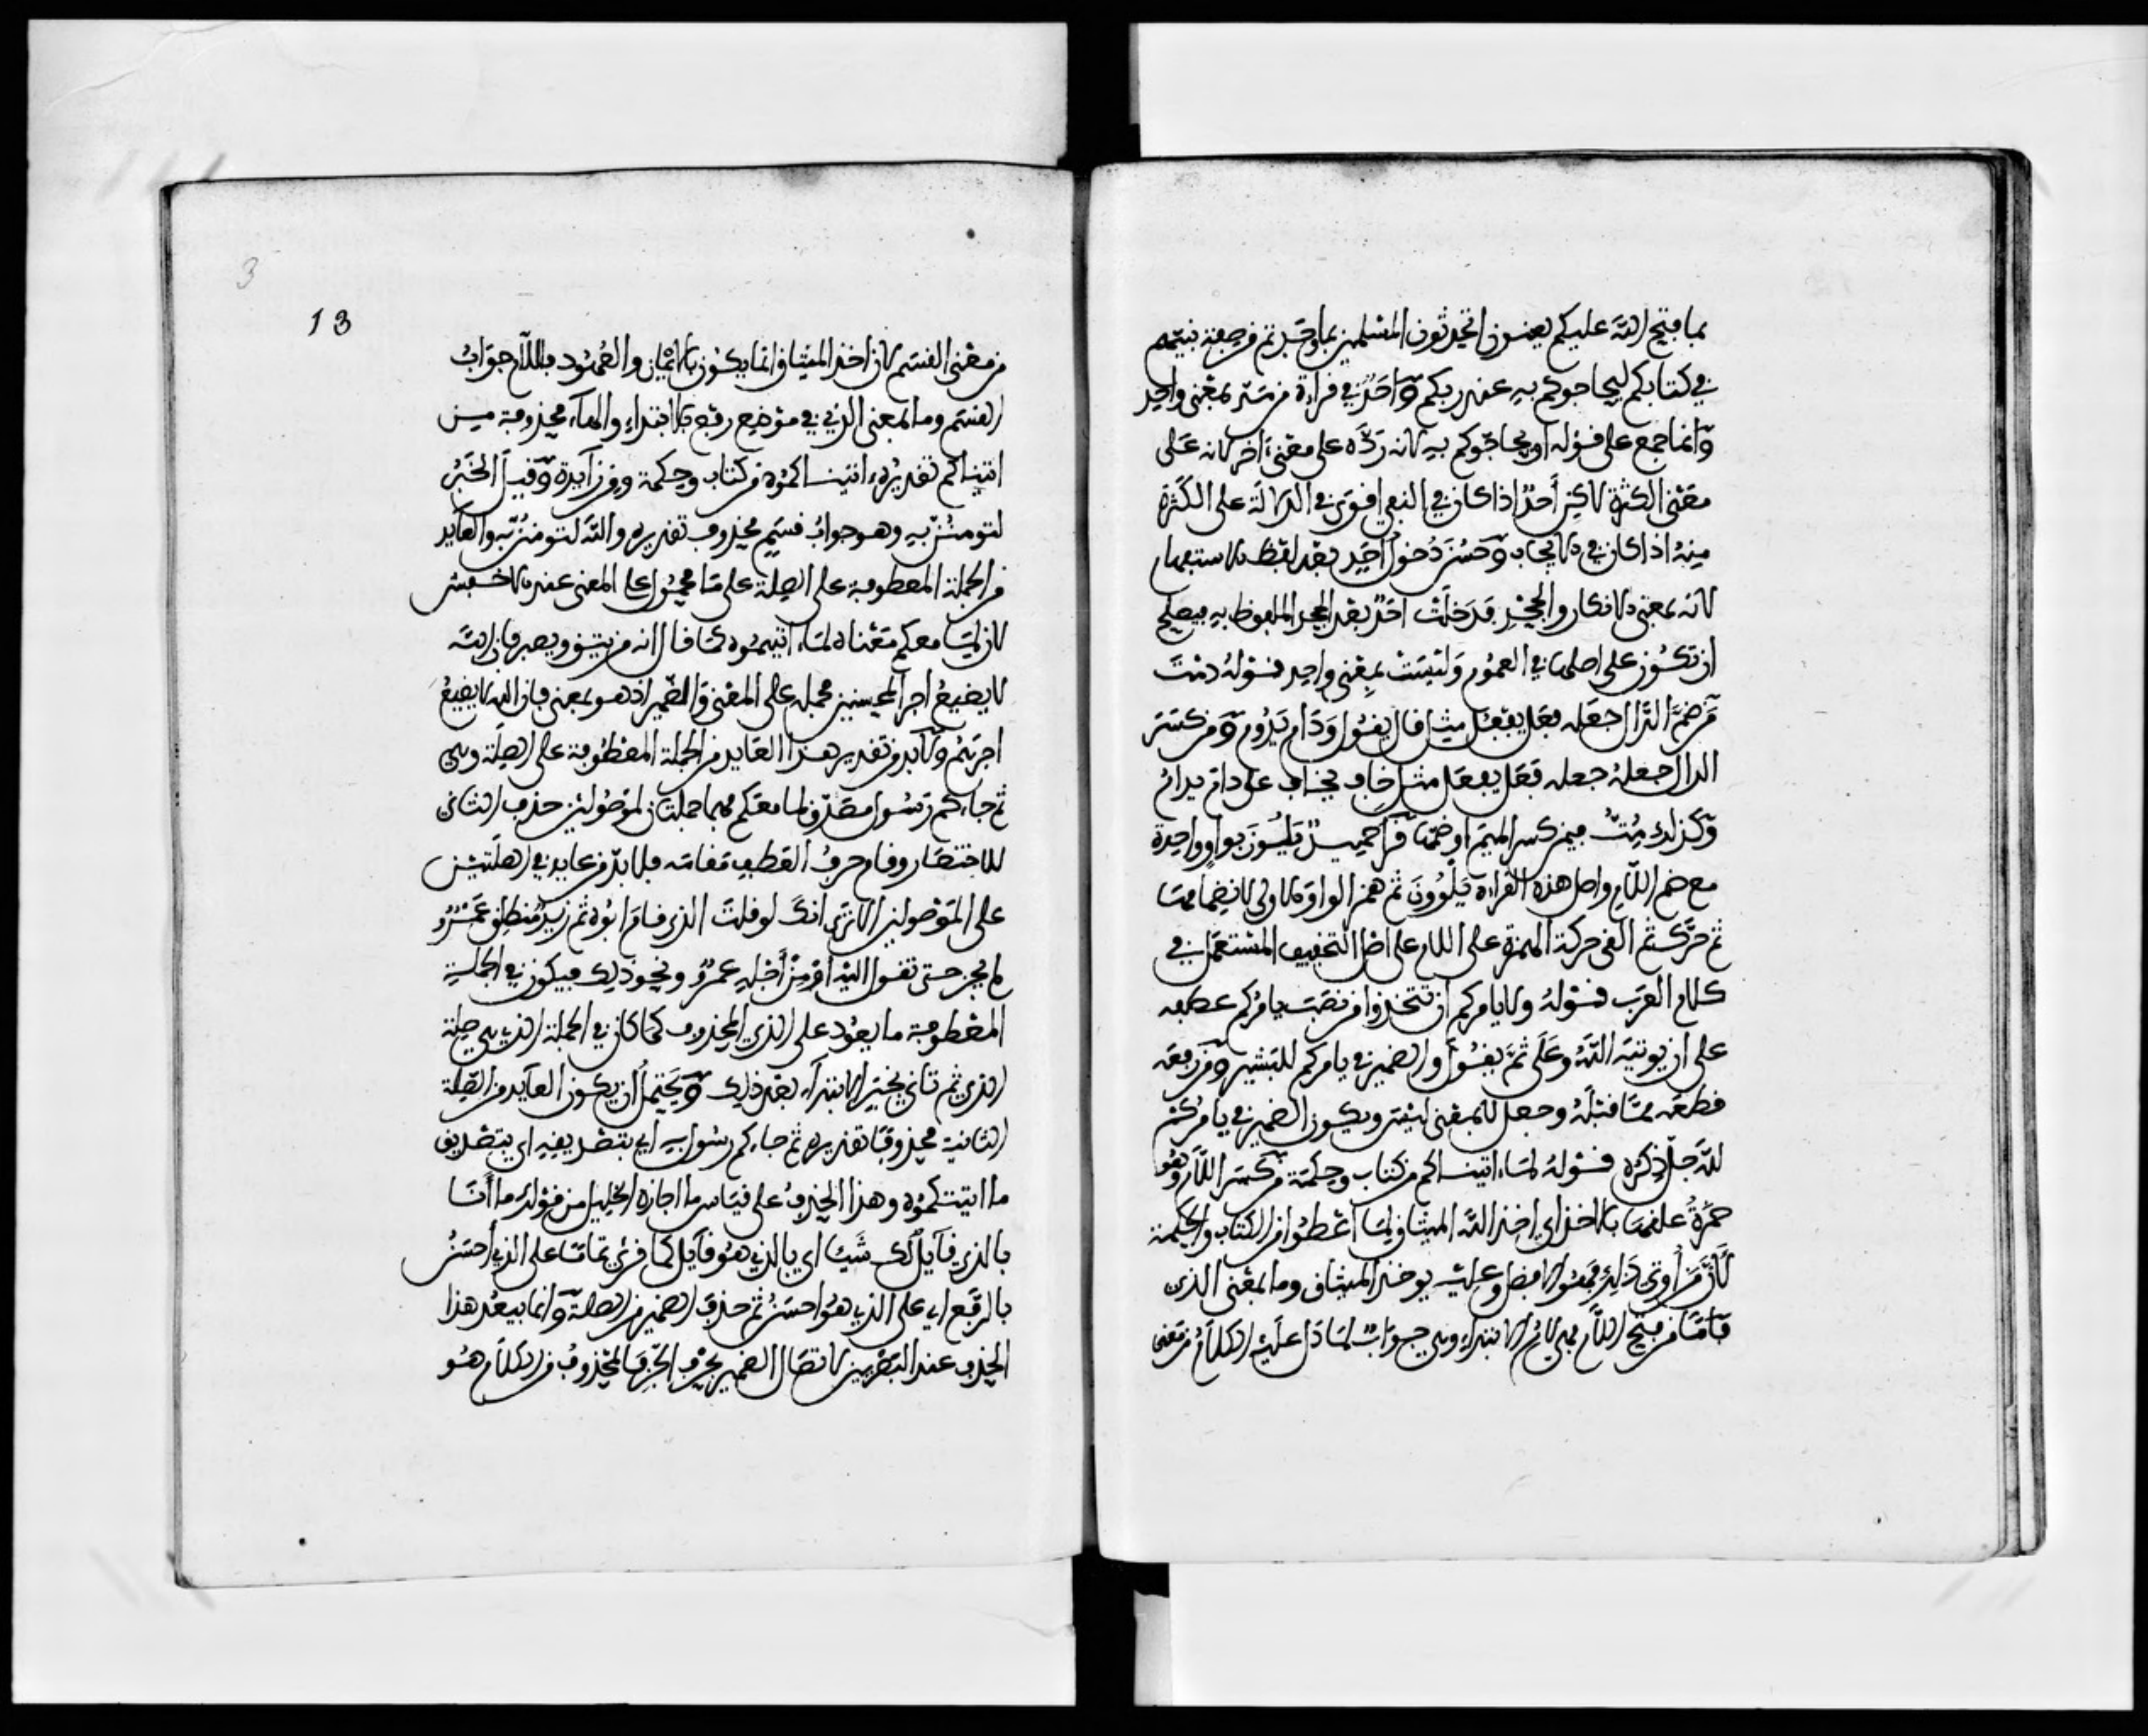 بما فتح الله عليكم يعنون اتحدثون المسلمين بما وجدتم من صفة نبيهم
في كتابكم ليحاجوكم به عند ربكم وأحد في قراءة من مد بمعنى واحد
وانما جمع على قوله او يحاجوكم به لانه رده على معنى احد لانه على
معنى الكثرة لاكن أحد اذا كان في النفي اقوى في الدلالة على الكثرة
منه اذا كان في الايجاب وحسن دخول احد بعد لفظ الاستفهام
لانه بمعنى الانكار والجحد فدخلت احد بعد الجحد الملفوظ به فيصلح
ان تكون على اصلها في العموم وليست بمعنى واحد قوله دمت
من ضم الدال جعله فعل يفعل مثل قال يقول ودام يدوم ومن كسر
الدال جعله جعله فعل يفعل مثل خاف يخاف على دام يدام
وكذلك مت فيمن كسر الميم او ضمها قرا حميد يلون بواو واحدة
مع ضم اللام واصل هذه القراءة يلوون ثم همز الواو الاولى لانضمامها
ثم حركت القى حركة الهمزة على اللام على اصل التخفيف المستعمل في
كلام العرب قوله ولا يامركم ان تتخذوا من نصب يامركم عطفه
على ان يوتيه الله وعلى ثم يقول والضمير في يامركم للبشر ومن رفعه
قطعه مما قبله وجعل لا بمعنى ليس ويكون الضمير في يامركم
لله جل ذكره قوله لما اتيناكم من كتاب وحكمة من كسر اللام وهو
حمزة علقها بالاخذ اي اخذ الله الميثاق لما أعطوا من الكتاب والحكمة
لان من أوتي ذلك فهو الافضل وعليه يوخذ الميثاق وما بمعنى الذي
فاما من فتح اللام فهي لام الابتداء وهي جواب لما دل عليه الكلام من معنى
3
13
من معنى القسم لان اخذ الميثاق انما يكون بالايمان والعهود فاللام جواب
القسم وما بمعنى الذي في موضع رفع بالابتداء والهاء محذوفة من
اتيناكم تقديره اتيناكموه من كتاب وحكمة ومن زايدة وقيل الخبر
لتومنن به وهو جواب قسم محذوف تقديره والله لتومنن به والعايد
من الجملة المعطوفة على الصلة على ما محمول على المعنى عند الاخفش
لان لما معكم معناه لما اتيتموه كما قال انه من يتق ويصبر فان الله
لا يضيع اجر المحسنين فحمله على المعنى والضمير اذ هو بمعنى فان الله لا يضيع
اجرهم ولا بد من تقدير هذا العايد من الجملة المعطوفة على الصلة وهي
ثم جاءكم رسول مصدق لما معكم فهما جملتان لموصولين حذف الثاني
للاختصار وقام حرف العطف مقامه فلا بد من عايد في الصلتين
على الموصولين الا ترى انك لو قلت الذي قام ابوه ثم زيد منطلق عمرو
لم يجز حتى تقول اليه او من أجله عمرو ونحو ذلك فيكون في الجملة
المعطوفة ما يعود على الذي المحذوف كما كان في الجملة التي هي صلة
الذي ثم تأتي بخبر الابتداء بعد ذلك ويحتمل أن يكون العايد من الصلة
الثانية محذوفا تقديره ثم جاءكم رسول به اي بتصديقه اي بتصديق
ما اتيتكموه وهذا الحذف على قياس ما اجازه الخليل من قوله ما أنا
بالذي قايل لك شيئا اي بالذي هو قايل كما قرئ تماما على الذي أحسن
بالرفع اي على الذي هو احسن ثم حذف الضمير من الصلة وانما يبعد هذا
الحذف عند البصريين لاتصال الضمير بحرف الجر فالمحذوف من الكلام هو